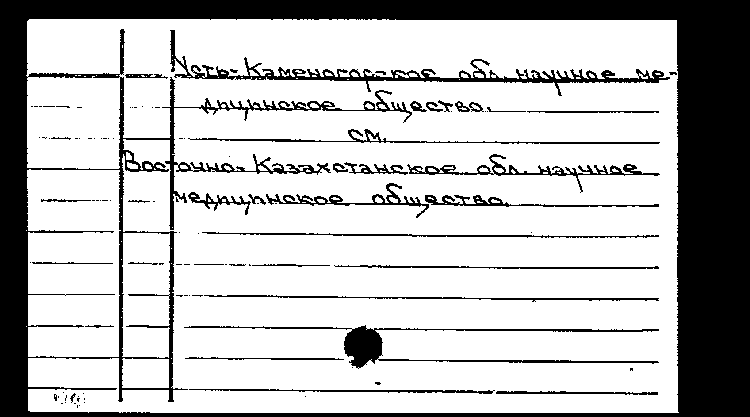 Усть-Каменогорское обл. научное ме-
дицинское общество.
см.
Восточно-Казахстанское обл. научное
медицинское общество.